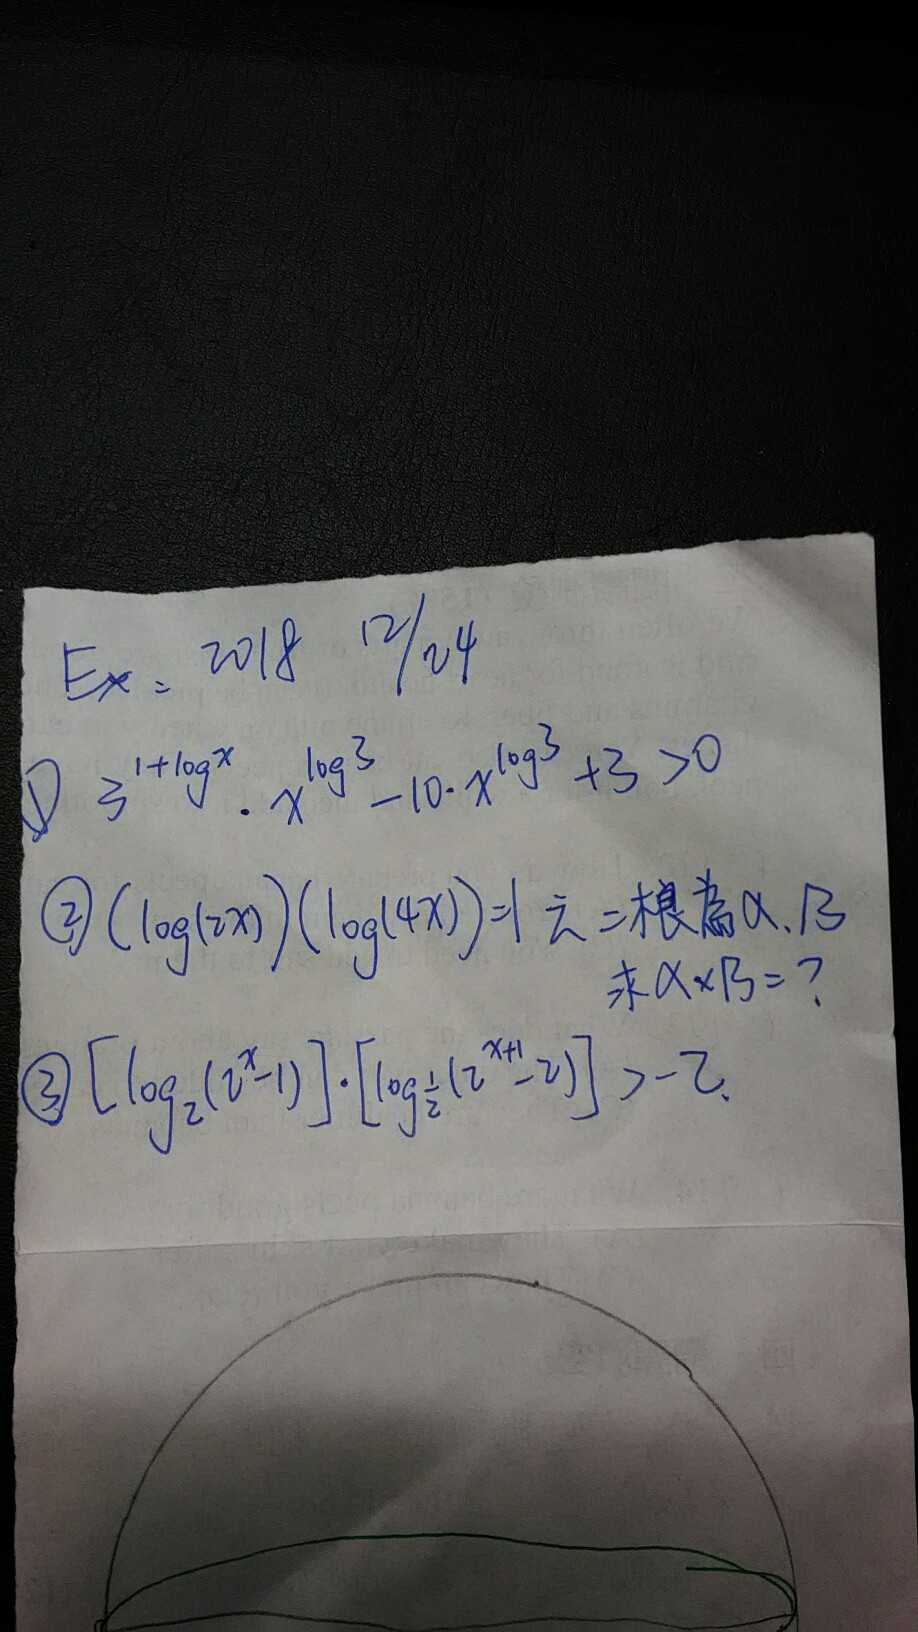 Ex: 2018 12/24
① 3^{1+log x} · x^{log 3} - 10 · x^{log 3} + 3 > 0
② (log(2x))(log(4x)) = 1 之二根為α、β
求α×β=?
③ [log_2(2^x-1)]·[log_{1/2}(2^{x+1}-2)] > -2.